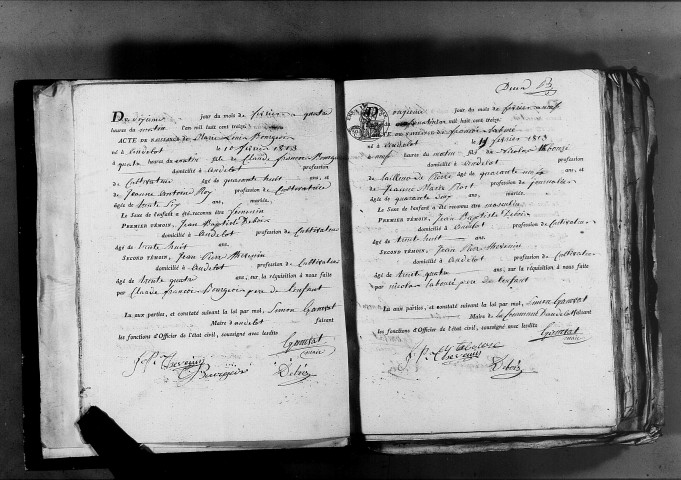 Du dixième jour du mois de février a quatre
heures du matin l'an mil huit cent treize
ACTE DE NAISSANCE de Marie Louise Bourgeois
né à andelot le 10 février 1813
à quatre heures du matin fils de Claude françois Bourgeois
domicilié à andelot profession
de Cultivateur âgé de quarante huit ans, et
de Jeanne Antoine Roy profession de Cultivatrice
âgée de trente six ans, mariés.
Le Sexe de l'enfant a été reconnu être féminin
PREMIER TÉMOIN, Jean Baptiste Debois
domicilié à andelot profession de Cultivateur
âgé de trente huit ans.
SECOND TÉMOIN, Jean Pierre thevenin
domicilié à andelot profession de Cultivateur
âgé de trente quatre ans, sur la réquisition à nous faite
par Claude francois Bourgeois pere de lenfant
Lu aux parties, et constaté suivant la loi par moi, Simon
Maire dandelot faisant
les fonctions d'Officier de l'état civil, soussigné avec lesdits
maire
J. P. Thevenin
Bourgeois
Debois
Du onzieme jour du mois de février a neuf
heures du matin l'an mil huit cent treize
ACTE DE NAISSANCE de françois
né à andelot le 11 février 1813
à neuf heures du matin fils de nicolas
domicilié à andelot profession
de âgé de quarante ans, et
de Jeanne Marie profession de journaliere
âgée de quarante ans, mariés.
Le Sexe de l'enfant a été reconnu être masculin
PREMIER TÉMOIN, Jean Baptiste Debois
domicilié à andelot profession de Cultivateur
âgé de trente huit ans.
SECOND TÉMOIN, Jean Pierre thevenin
domicilié à andelot profession de Cultivateur
âgé de trente quatre ans, sur la réquisition à nous faite
par nicolas pere de lenfant
Lu aux parties, et constaté suivant la loi par moi, Simon
Maire de la Commune dandelot faisant
les fonctions d'Officier de l'état civil, soussigné avec lesdits
maire
J. P. Thevenin
Debois